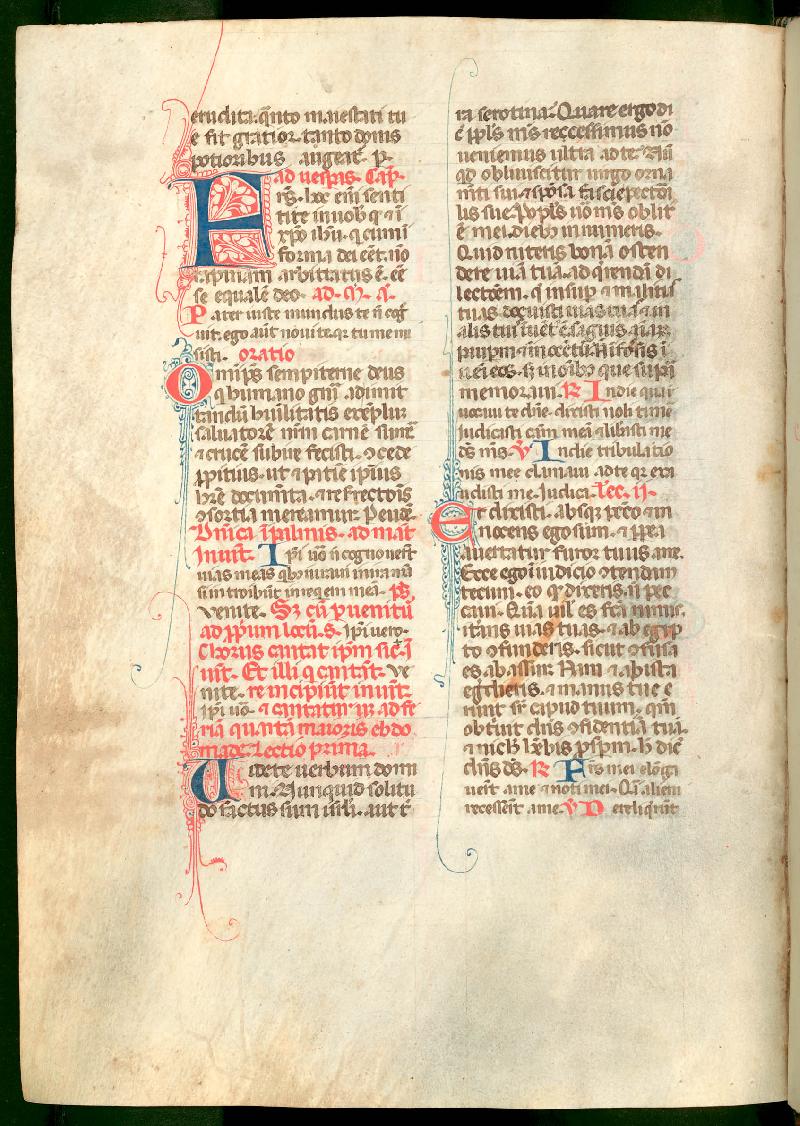 erudita. q̄nto maiestati tu
e fit gratior. tanto donis
potioribus augeat̄. p.
ad uesp̄as. Cap.
Frēs. hoc eni᷑ senti
te in uob̄ q̄ ⁊ i
xp̄o ih̄u. q̄ cum i
forma dei eēt. nō
rapinam arbitratus ē. eē
se equalē deo. ad. m̄. a.
Pater iuste mundus te n̄ coḡ
uit. ego aut̄ noui te. q̄r tu me mi
sisti. oratio
Omīps sempiterne deus
q humano gn̄i ad imit
tandū humilitatis exēplū.
saluatorē nr̄m carnē sumē
⁊ crucē subire fecisti. ꝯcede
ꝓpitius. ut ⁊ patiētie ip̄ius
h̄re documēta. ⁊ resurrectōis
ꝯsortia mereamur. Per eūdē.
Dn̄ica ī palmis. ad mat̄
Inuit̄. Ip̄i uō n̄ cognouer̄t
uias meas qb̄ iuraui in ira mā
si introibūt in requiem meā. p̄s
venite. Sz cū ꝑuenitū
ad ꝓp̄um locū. s. Ip̄i uero.
Chorus cantat ip̄m sic. i
uit̄. Et illi q̄ cantāt. ve
nite. reincipiūt inuit̄.
Ip̄i uō. ⁊ cantatur us̄ ad fe
riā quartā maioris ebdo
made. Lectio prima.
Uidete uerbum domi
ni. Nunquid solitu
do factus sum isrl̄. aut t̄
ra serotina. Quare ergo di
x̄ ppl̄s m̄s recessimus nō
ueniemus ultra ad te. Nū
qd obliuiscitur uirgo orna
mēti sui. ⁊ spōsa fascie pectorī
lis sue. Ppl̄s uō m̄s oblit̄
ē mei dieb̄ innumeris.
Quid niteris bonā osten
dere uiā tuā. ad q̄rendā di
lectōem. q̄ insup ⁊ malitias
tuas docuisti uias tuas. ⁊ in
alis tuis īuēt̄ ē sāguis aīar̄
paupum. ⁊ innocētū. Nō ī fossis ī
uēi eos. s̄ in oīb̄ que supra
memoraui. R̄ In die qua ī
uocaui te dn̄e. dixisti noli time
Iudicasti cām meā ⁊ libasti me
dn̄s ds̄ ms̄. V̄ In die tribulatio
nis mee clamaui ad te q̄r exa
udisti me. Iudica. Lec. ii.
Et dixisti. absq̄ pctō ⁊ in
nocens ego sum. ⁊ ꝓpt̄ea
auertatur furor tuus a me.
Ecce ego iudicio ꝯtendam
tecum. eo q̄ dixeris. n̄ pec
caui. Quā uil̄ es fc̄a nimis.
itans uias tuas. ⁊ ab egip
to ꝯfunderis. sicut ꝯfusa
es ab assur. Nam ⁊ ab ista
egredieris. ⁊ manus tue e
runt sr̄ caput tuum. qm̄
obt̄uit dn̄s ꝯfidentiā tuā.
⁊ nich̄ h̄ebis ꝓspm̄. h̄ dic̄
dn̄s ds̄. R̄ Frēs mei elōga
uer̄t a me ⁊ noti mei. Q̄si alieni
recesser̄t a me. V̄ Dereliqr̄unt